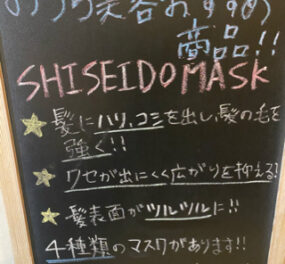 美容おすすめ
商品!!
SHISEIDO MASK
髪にハリ、コミを出し、髪の毛を
強く!!
ワセが出にくく広がりを抑える!
髪表面がツルツルに!!
4種類のマスクがあります!!